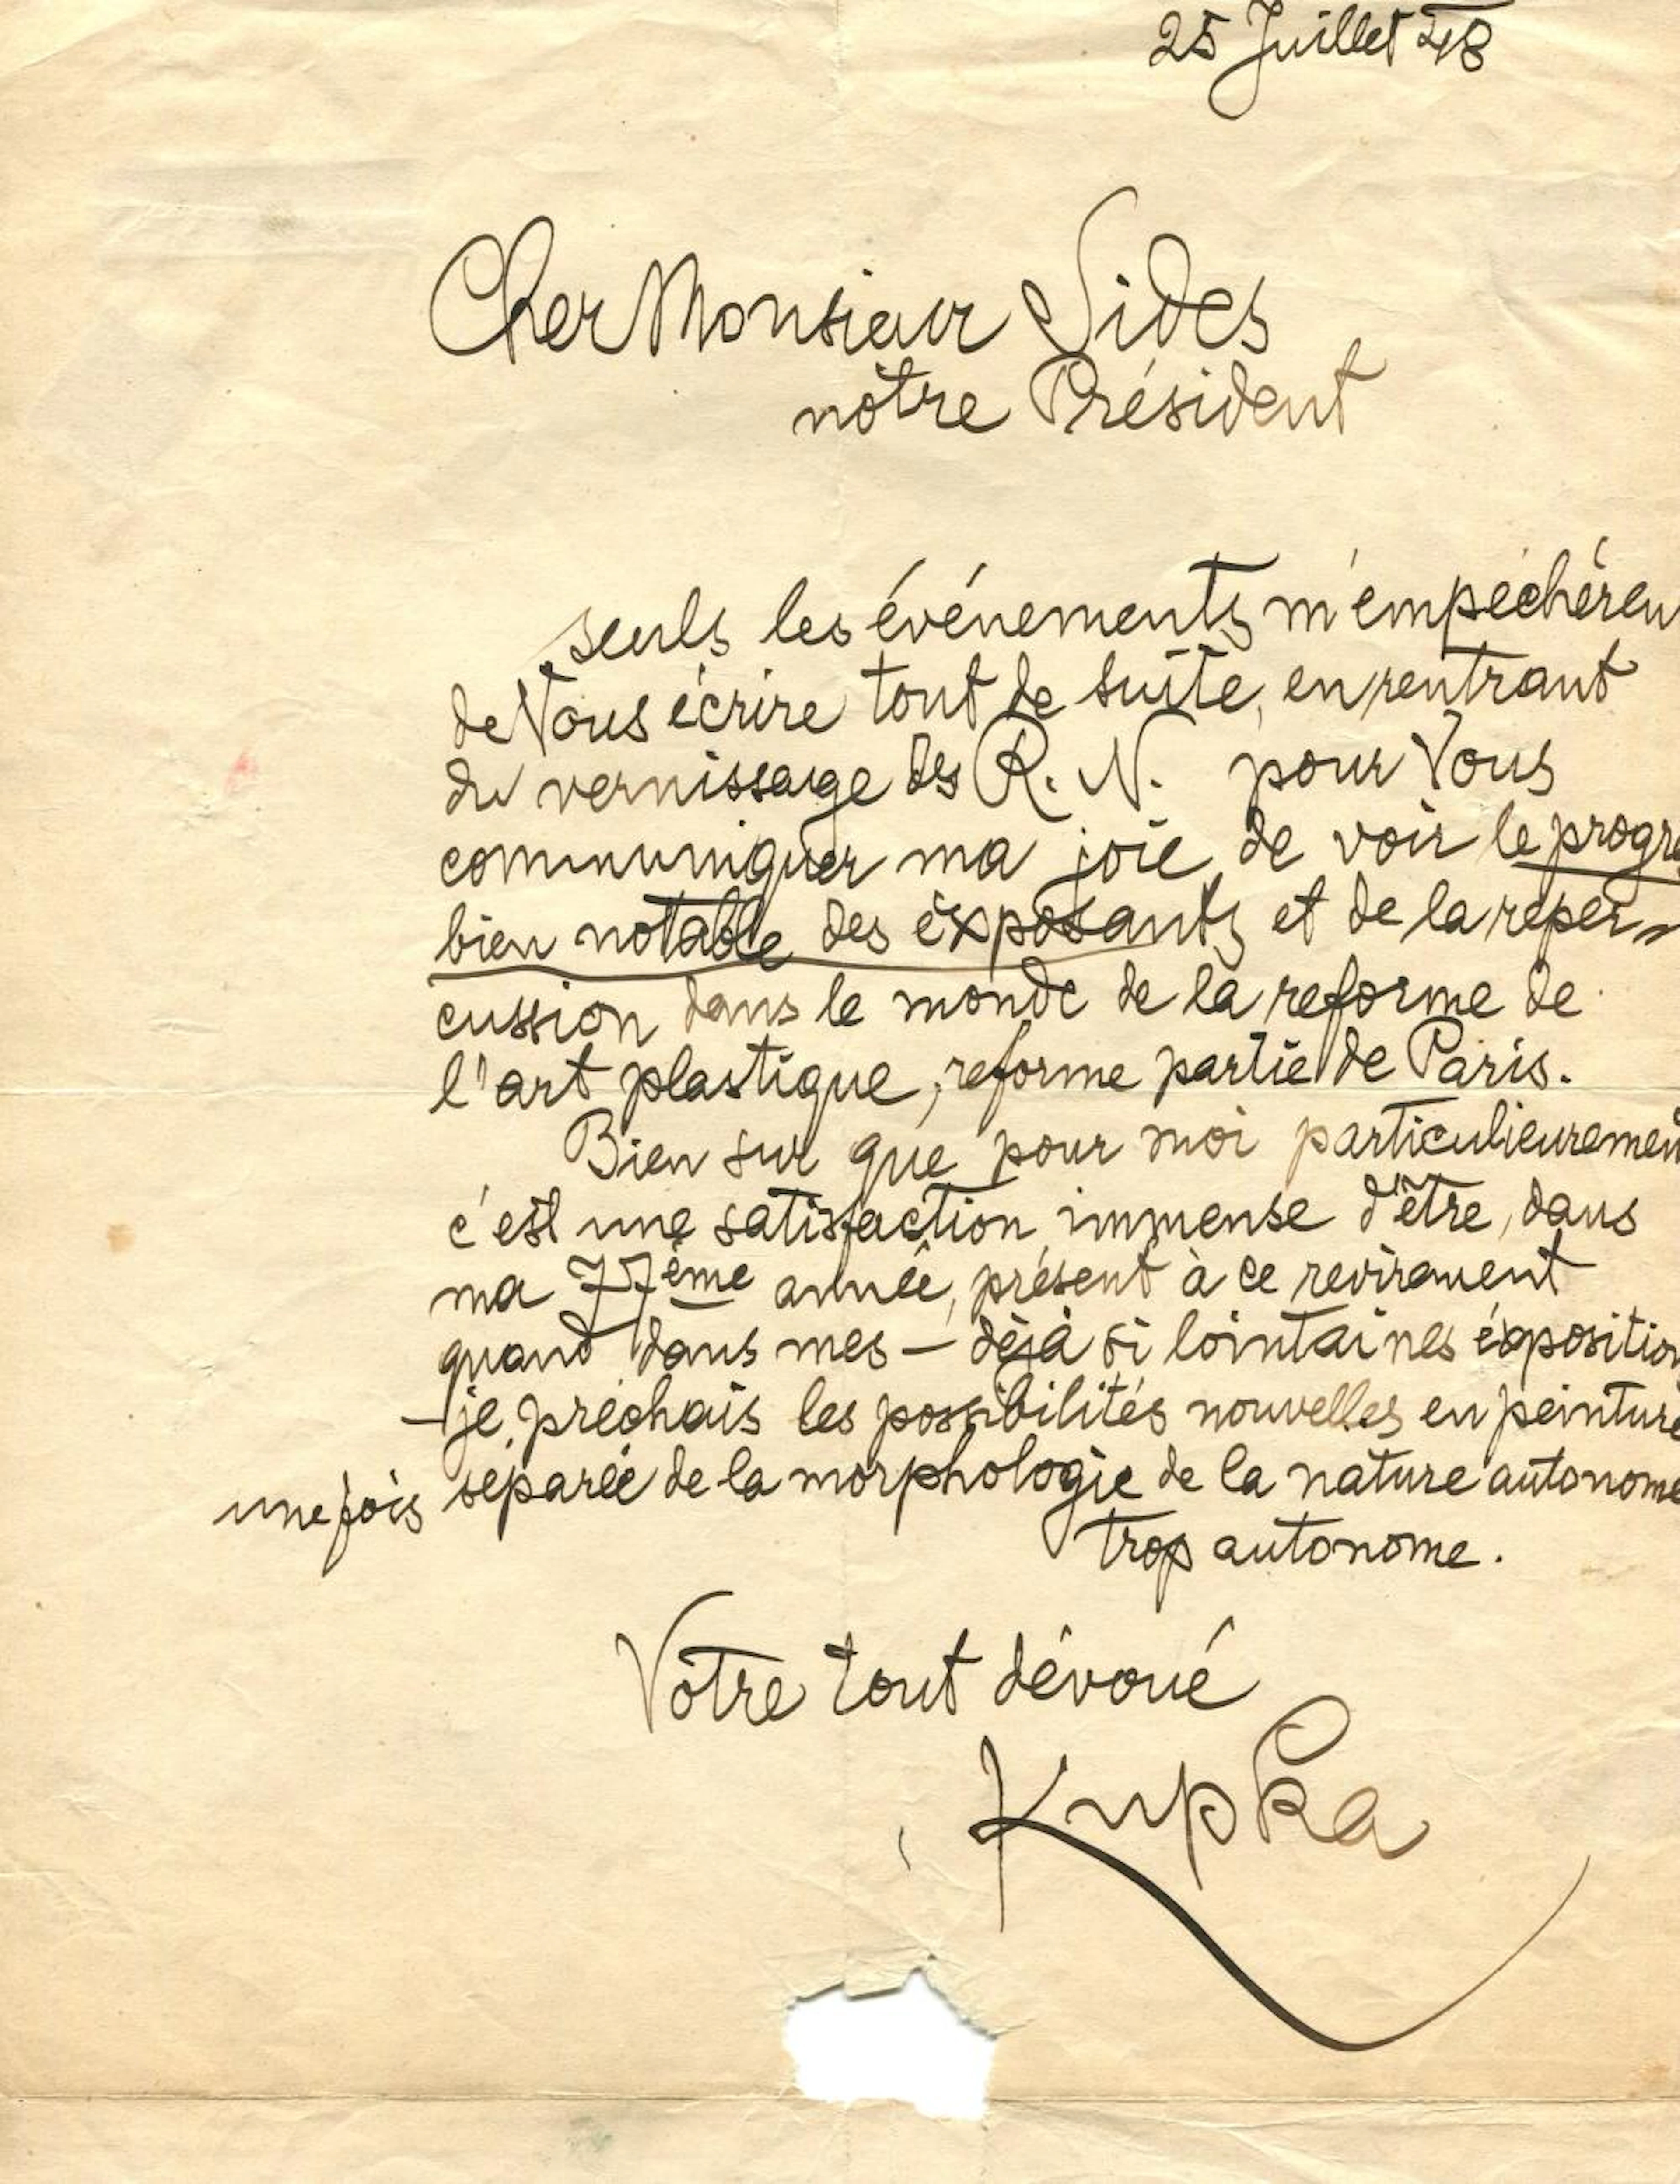 25 Juillet 48
Cher Monsieur Sides
nôtre Président
seuls les événements m'empéchéren
de Vous écrire tout de suite, en rentrant
du vernissage des R. N. pour Vous
communiquer ma joie de voir le progre
bien notable des éxposants et de la reper-
cussion dans le monde de la reforme de
l'art plastique, reforme partie de Paris.
Bien sur que pour moi particulieuremen
c'est une satisfaction immense d'être, dans
ma 77ème année, présent à ce revirement
quand dans mes — déjà si lointaines éxposition
— je préchais les possibilités nouvelles en peinture
une fois séparée de la morphologie de la nature autonome
trop autonome.
Vôtre tout dévoué
Kupka